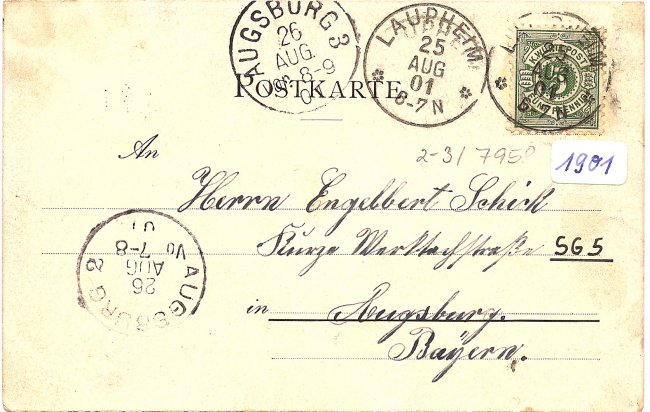 AUGSBURG 3
26
AUG.
8-9
LAUPHEIM
25
AUG
01
6-7N
LAUPHEIM
AUG
01
6-7N
K.WÜRTT.POST
5
FÜNF PFENNIG
POSTKARTE
2-31 7958
1901
An
Herrn Engelbert Schick
Kurze Werktachstraße SG5
in Augsburg.
Bayern.
AUGSBURG 2
26
AUG
Vo 7-8
01